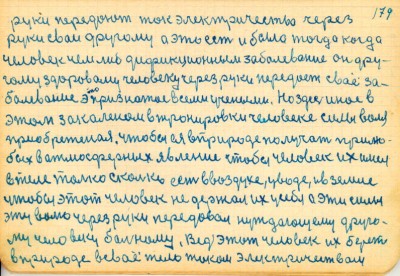 179
руки передоют ток электричество через
руки сваи другому а это ест и было тогда когда
человек чем либ дификционным заболевание он дру-
гому здоровому человеку через руки передает сваё за-
болевание это признатое всеми учеными. Но здес иное в
этом закаленом в тронировки человеке силы воли
приобретеная, чтобы ея в природе получат при любых
в атмосферных явление чтобы человек их имел
в теле толко сколько ест в воздухе, у воде, и в земле
чтобы этот человек не держал их у себя а эти силы
эту волю через руки передовал нуждающему друго-
му человику болному. Вед этот человек их берет
в природе в сваё тело током электричествам